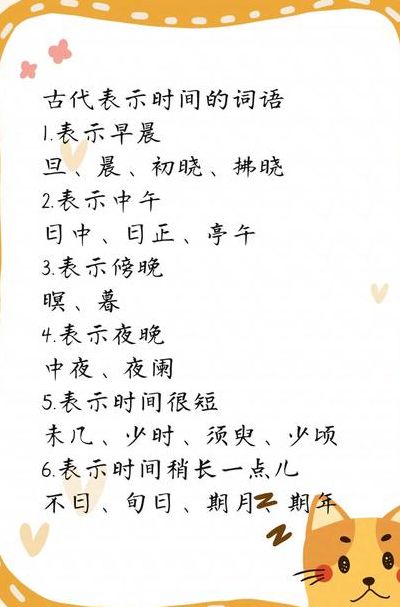 古代表示时间的词语
1.表示早晨
旦、晨、初晓、拂晓
2.表示中午
日中、日正、亭午
3.表示傍晚
暝、暮
4.表示夜晚
中夜、夜阑
5.表示时间很短
未几、少时、须臾、少顷
6.表示时间稍长一点儿
不日、旬日、期月、期年